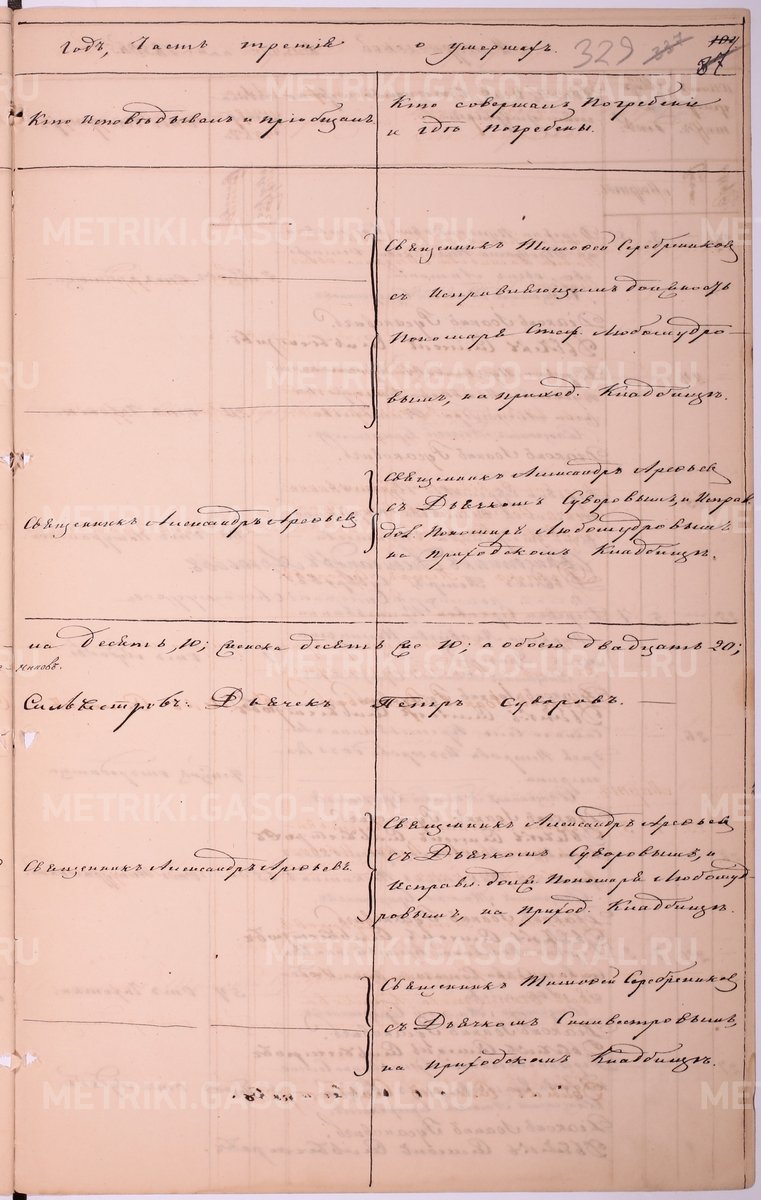 Годъ, Часть третія о умершихъ. 329 337 104 87
Кто исповѣдывалъ и пріобщалъ.
Кто совершалъ погребеніе
и гдѣ погребены.
Священникъ Тимофей Серебрениковъ
съ исправляющимъ должность
Пономаря Стеф. Любомудро-
вымъ, на приход. Кладбищѣ.
Священникъ Александръ Арефьев
Священникъ Александръ Арефьев
съ Дьячкомъ Суворовымъ, и исправ.
дол. Пономаря Любомудровымъ
на Приходскомъ Кладбищѣ.
на десять, 10; женска десять 10; а обоего двадцать 20;
никовъ.
Сильвестровъ: Дьячекъ Петръ Суворовъ.
Священникъ Александръ Арефьевъ.
Священникъ Александръ Арефьев
съ Дьячкомъ Суворовымъ, и
исправл. долж. Пономаря Любомуд-
ровымъ, на Приход. Кладбищѣ.
Священникъ Тимофей Серебрениковъ
съ Дьячкомъ Силивестровымъ,
на Приходскомъ Кладбищѣ.
METRIKI.GASO-URAL.RU